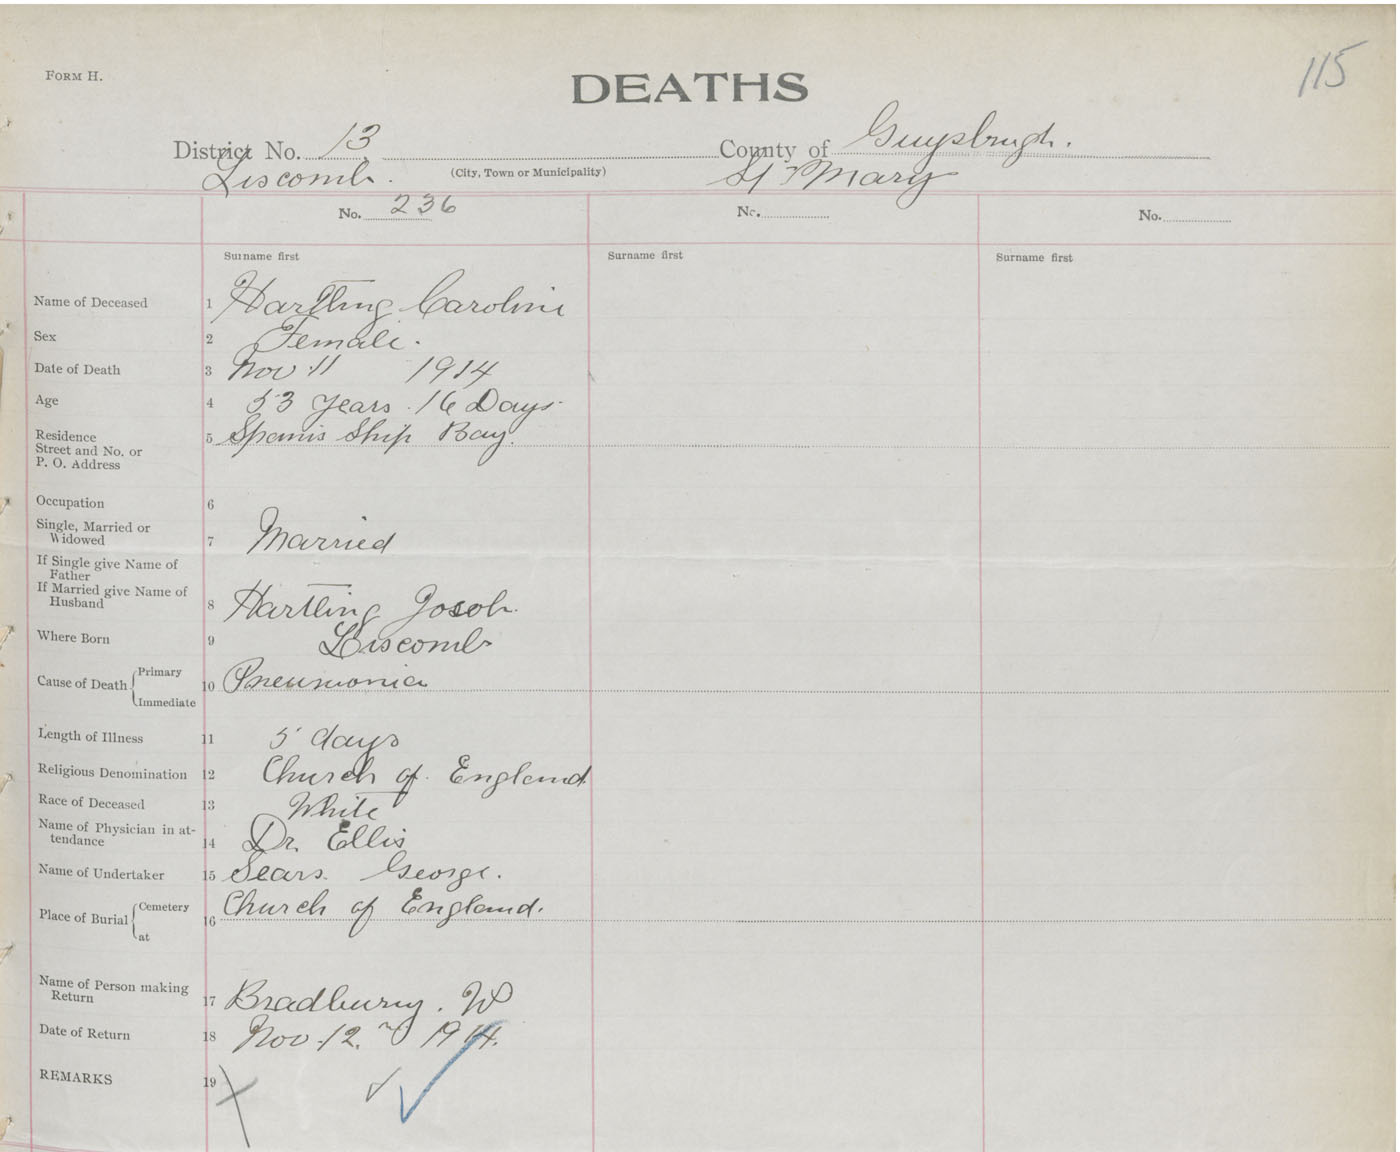 FORM H.
115
DEATHS
District No. 13 County of Guysbrugh.
Liscomb. (City, Town or Municipality) St Mary
No. 236 No. No.
Surname first Surname first Surname first
Name of Deceased 1 Hartling Caroline
Sex 2 Female.
Date of Death 3 Nov 11 1914
Age 4 53 years 16 Days
Residence 5 Spanis Ship Bay.
Street and No. or
P. O. Address
Occupation 6
Single, Married or
Widowed 7 Married
If Single give Name of
Father
If Married give Name of
Husband 8 Hartling
Where Born 9 Liscomb
Cause of Death Primary 10 Pneumonia
Immediate
Length of Illness 11 5 days
Religious Denomination 12 Church of England
Race of Deceased 13 White
Name of Physician in at-
tendance 14 Dr. Ellis
Name of Undertaker 15 Sears George.
Place of Burial Cemetery 16 Church of England.
at
Name of Person making
Return 17 Bradbury. W
Date of Return 18 Nov. 12. 1914.
REMARKS 19